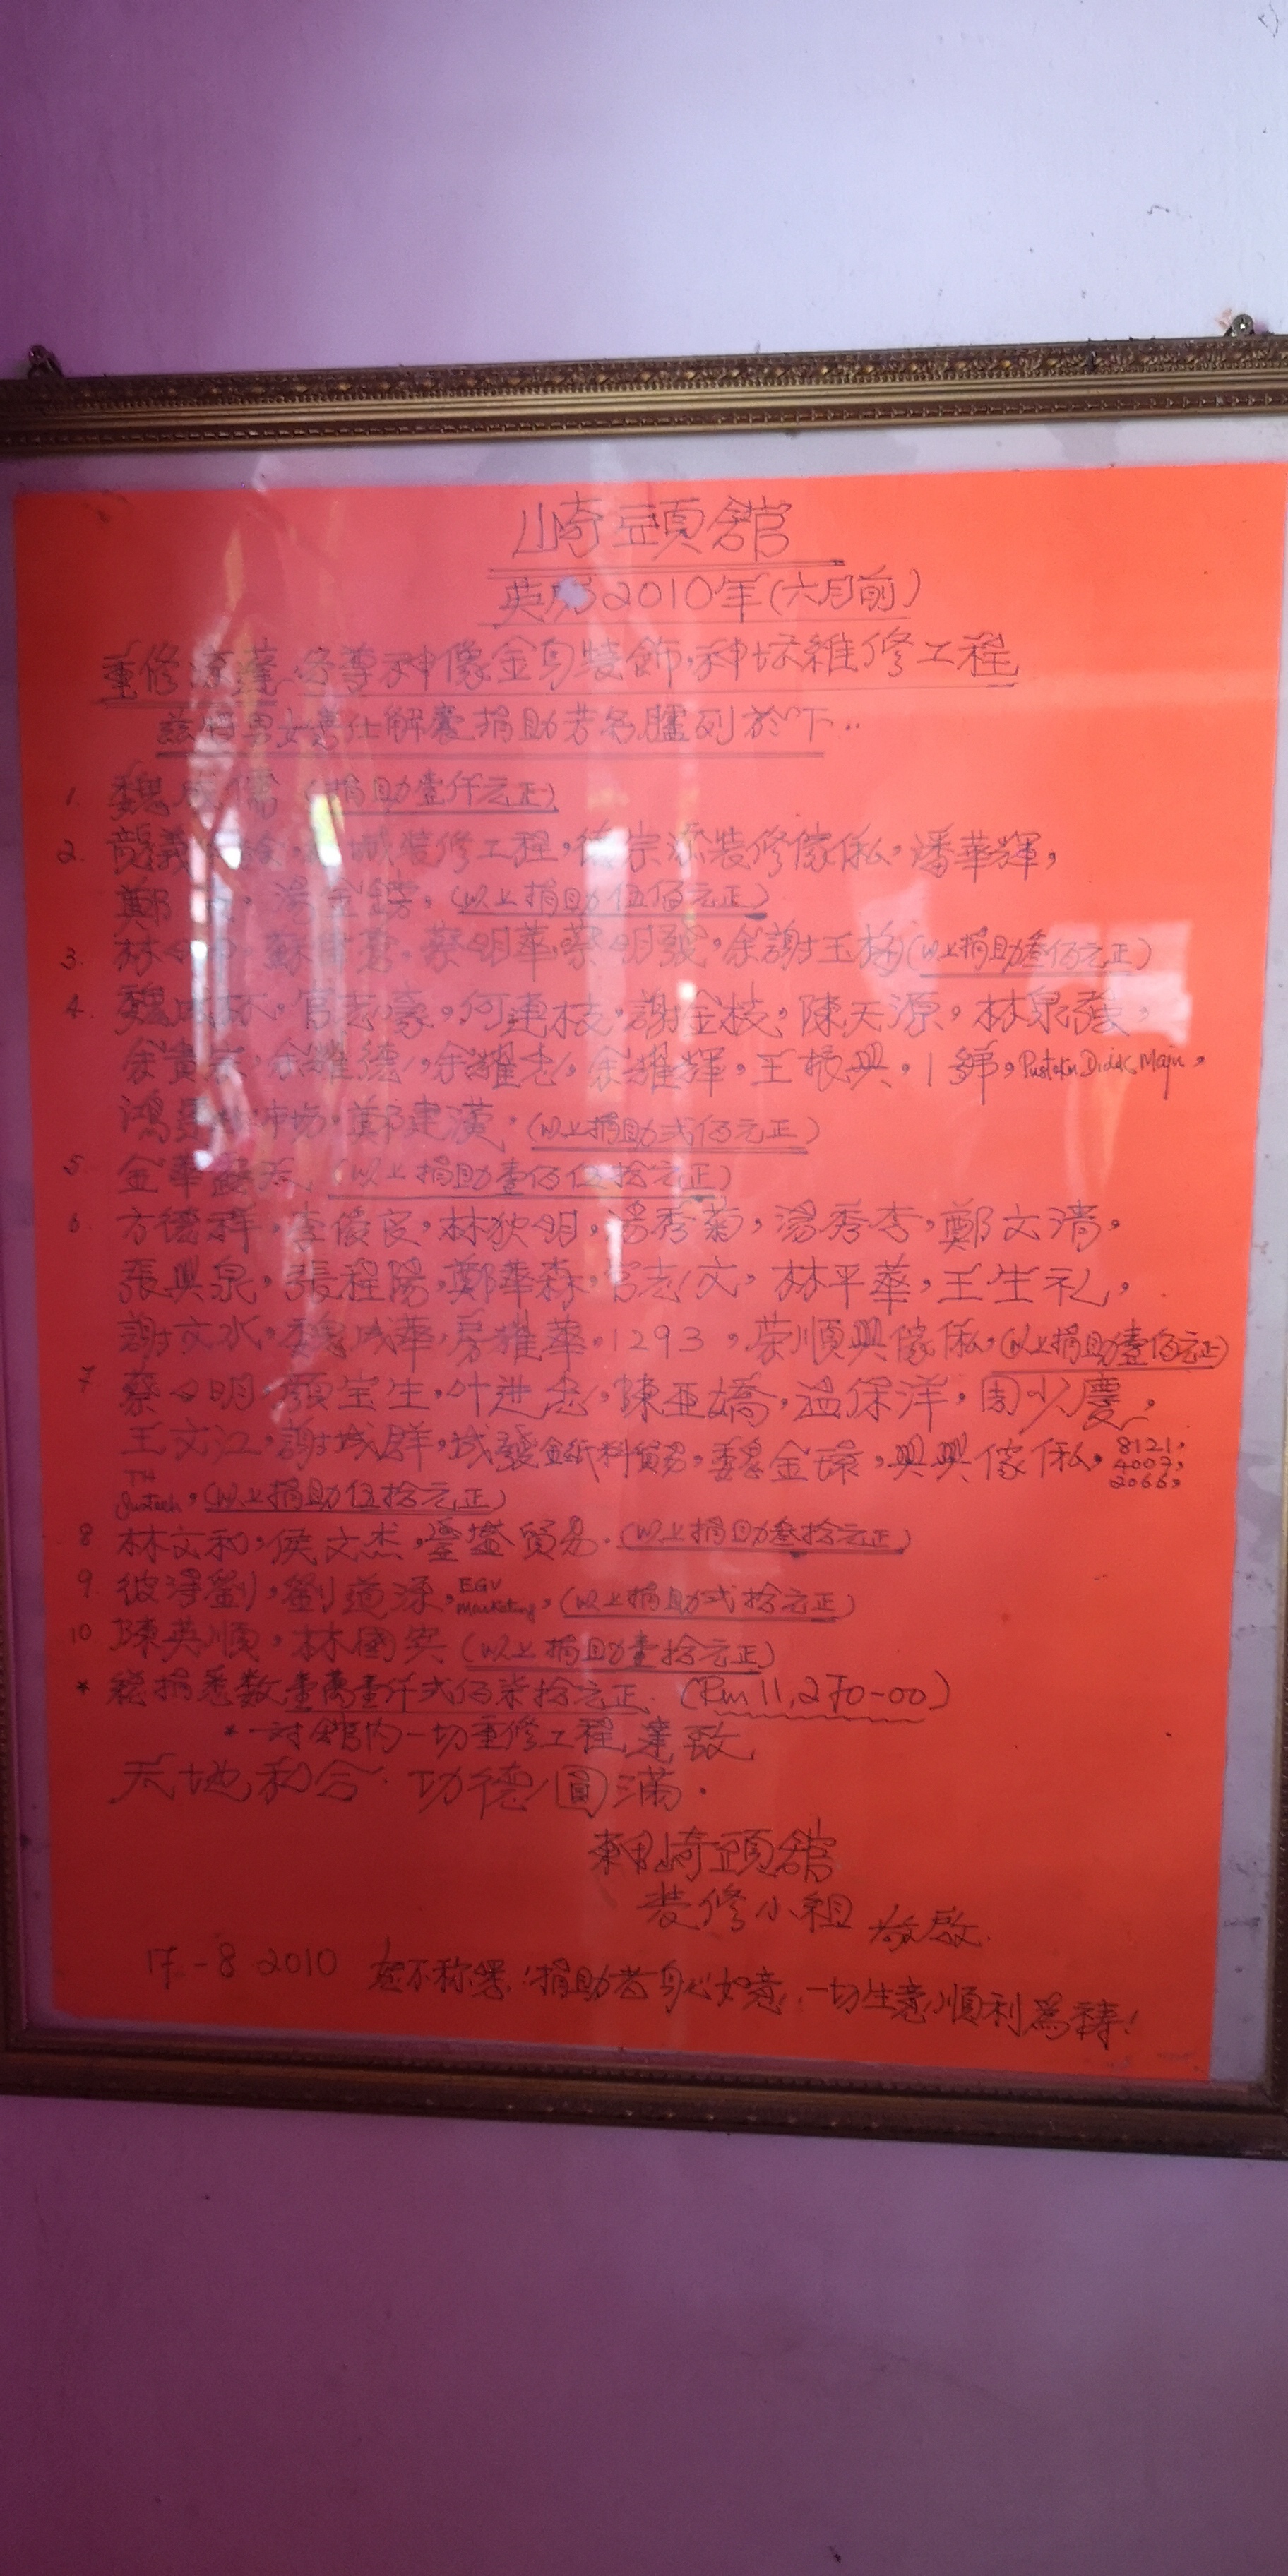 崎頭館
英歷2010年(六月前)
重修 各尊神像金身裝飾,神坛維修工程
男女善仕解囊捐助芳名臚列於下..
1. 魏成 (捐助壹仟元正)
2. 龍義 城装修工程, 宗添装修傢俬, 潘華輝,
鄭 湯金鎊, (以上捐助伍佰元正)
3. 林 蘇 蔡明華, 蔡明發, 余謝玉梅(以上捐助叁佰元正)
4. 魏成 官志豪, 何連枝, 謝金枝, 陳天源, 林泉發,
余貴 余耀德, 余耀忠, 余耀輝, 王振興, Pustaka Didak Maju,
鴻 鄭建漢, (以上捐助弍佰元正)
5. 金華 (以上捐助壹佰伍拾元正)
6. 方德祥, 李俊良, 林狄明, 湯秀菊, 湯秀李, 鄭文清,
張興泉, 張程陽, 鄭華森, 官志文, 林平華, 王生礼,
謝文水, 魏成華, 房耀華, 1293, 荣順興傢俬, (以上捐助壹佰元正)
7 蔡明, 顏宝生, 叶进忠, 陳亚嬌, 温保洋, 周少慶,
王文江, 謝城群, 城發金紙料貿易, 魏金環, 興興傢俬, 8121, 4007, 2066,
TH (以上捐助伍拾元正)
8 林文和, 侯文杰, 貿易. (以上捐助叁拾元正)
9. 彼得劉, 劉道添, EGU Marketing, (以上捐助弍拾元正)
10 陳英順, 林國宾 (以上捐助壹拾元正)
* 總捐悉数壹萬壹仟弍佰柒拾元正. (Rm 11,270-00)
* 対舘内一切重修工程達致
天地和合. 功德圓滿.
崎頭舘
装修小组 敬啟.
17-8 2010 恕不称呼, 捐助者身心如意, 一切生意順利為祷!